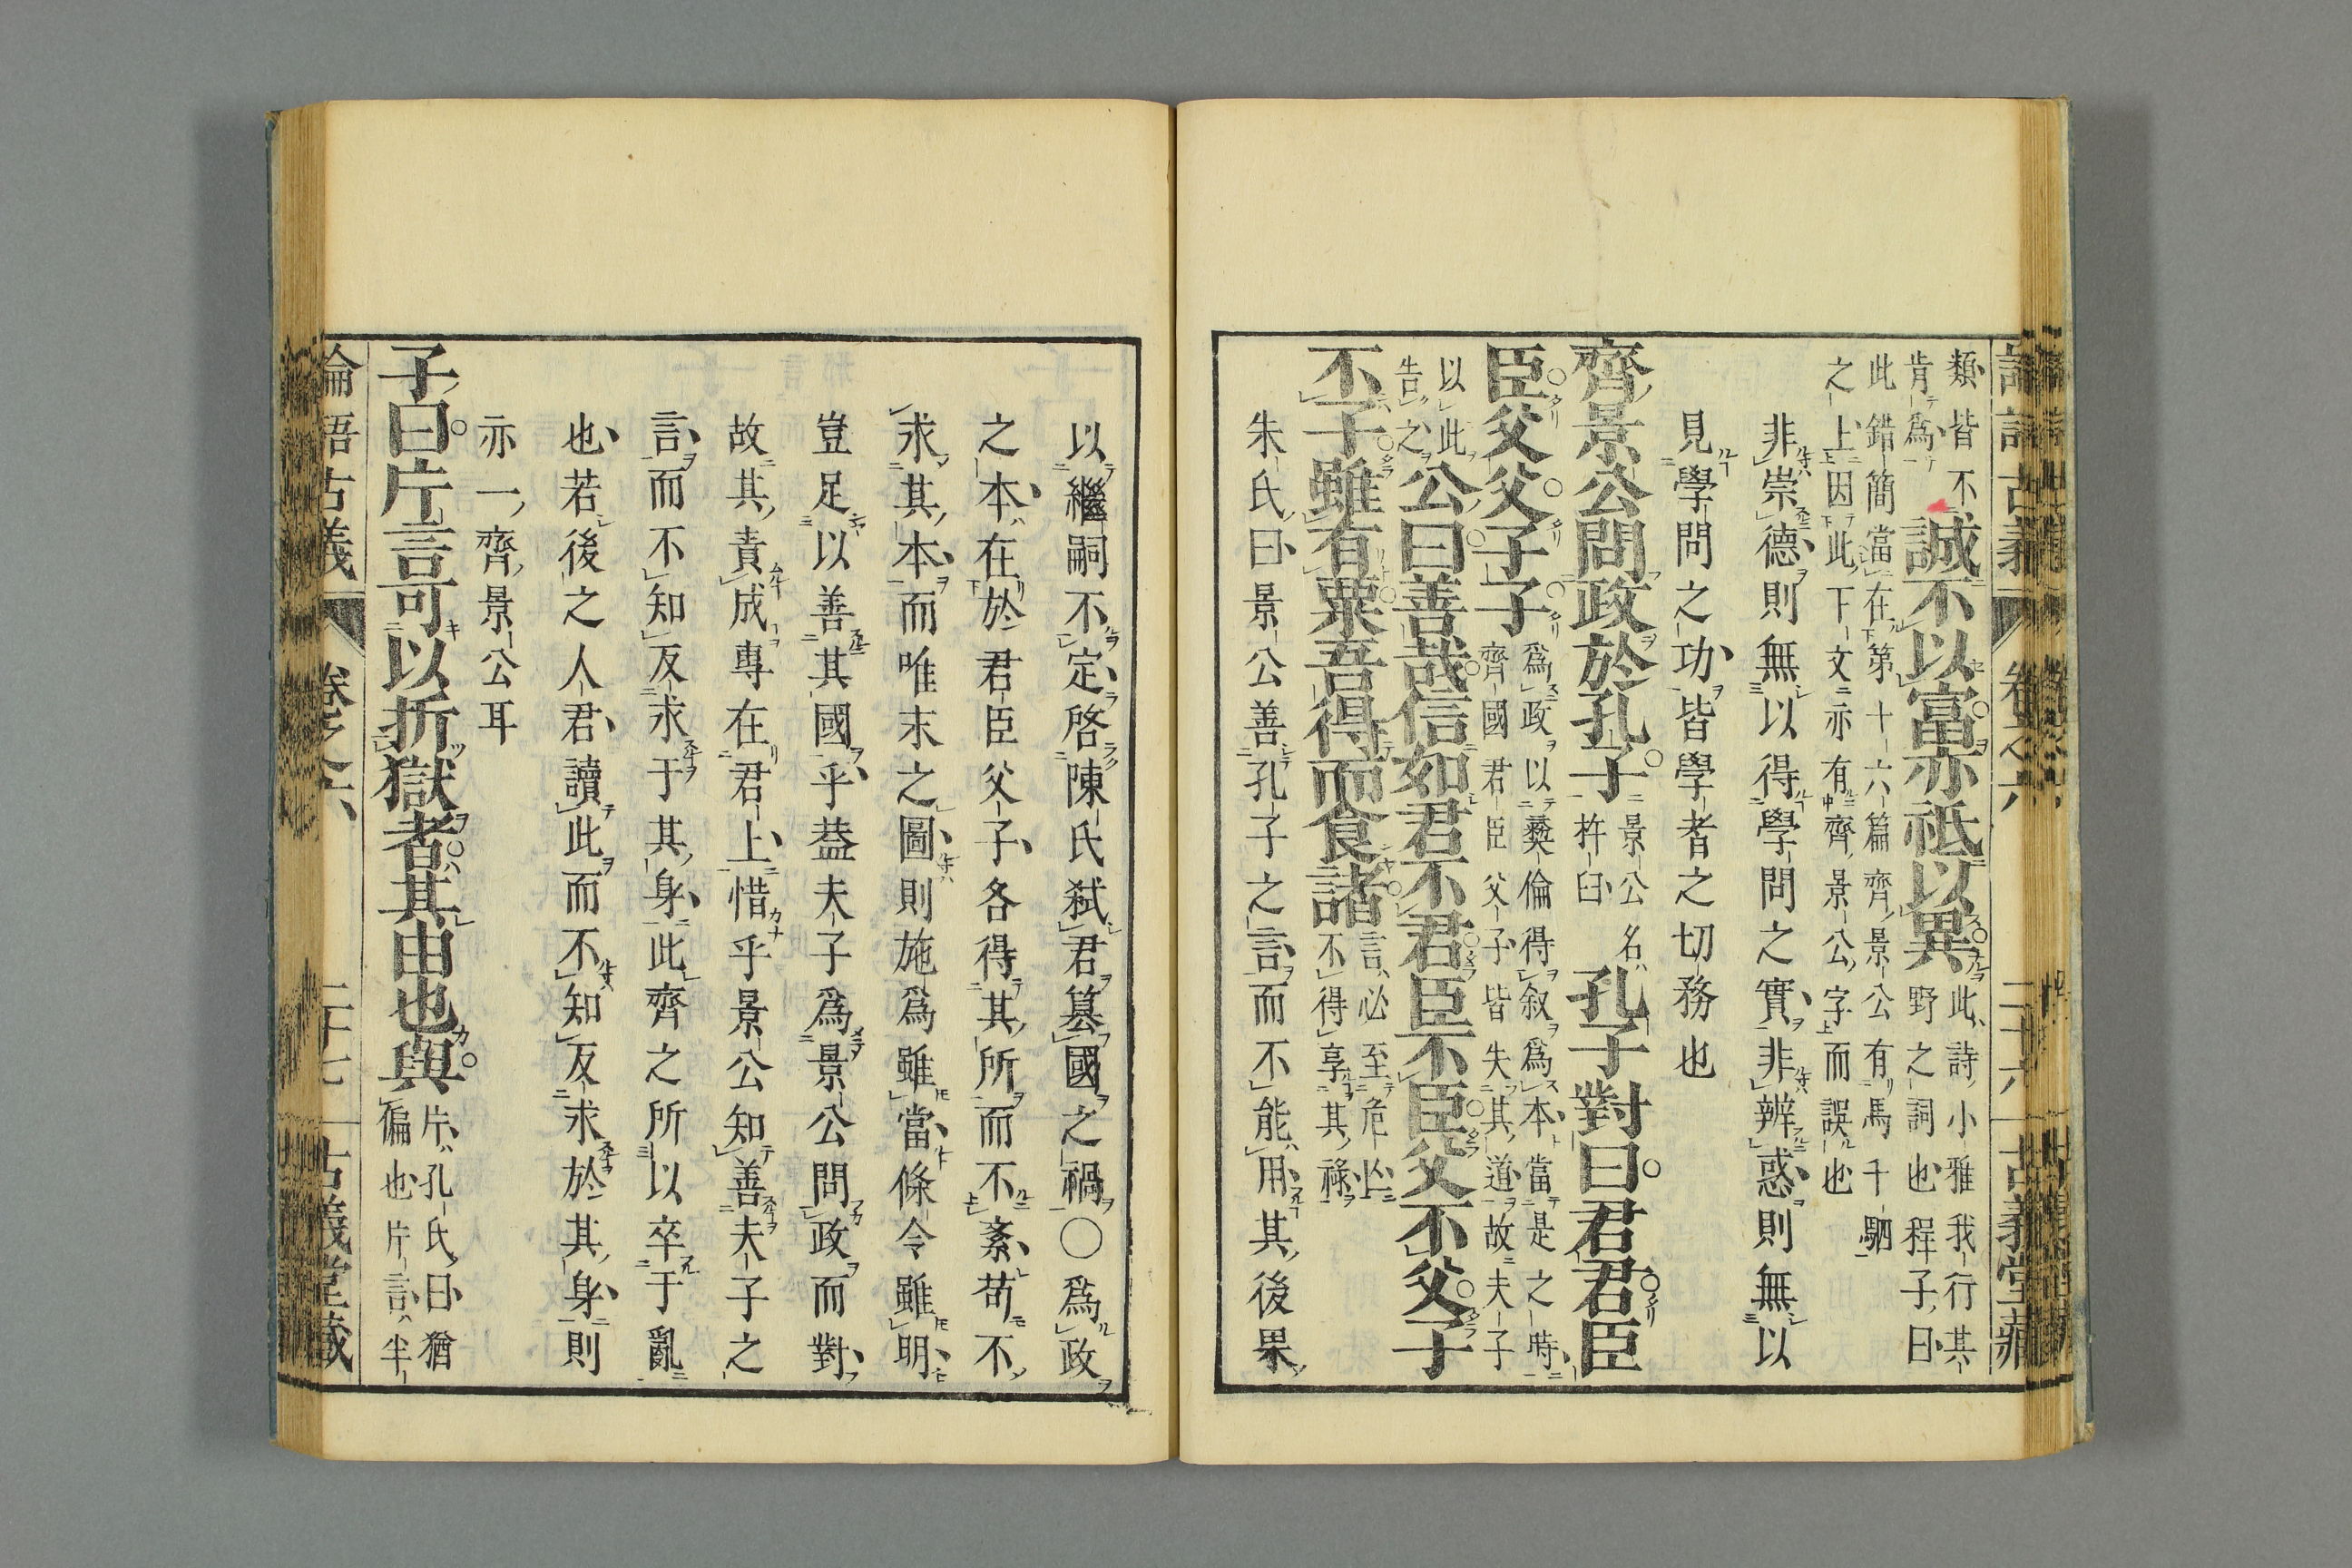 類皆不
肯爲
誠不以富亦祗以異
此詩小雅我行其
野之詞也程子曰
此錯簡當在第十六篇齊景公有馬千駟
之上因此下文亦有齊景公字而誤也
非崇德則無以得學問之實非辨惑則無以
見學問之功皆學者之切務也
齊景公問政於孔子
景公名
杵臼
孔子對曰君君臣
臣父父子子
爲政以彝倫得叙爲本當是之時
齊國君臣父子皆失其道故夫子
以此
告之
公曰善哉信如君不君臣不臣父不父子
不子雖有粟吾得而食諸
言必至危亡
不得享其祿
朱氏曰景公善孔子之言而不能用其後果
以繼嗣不定啓陳氏弑君簒國之禍〇爲政
之本在於君臣父子各得其所而不紊苟不
求其本而唯末之圖則施爲雖當條令雖明
豈足以善其國乎葢夫子爲景公問政而對
故其責成專在君上惜乎景公知善夫子之
言而不知反求于其身此齊之所以卒于亂
也若後之人君讀此而不知反求於其身則
亦一齊景公耳
子曰片言可以折獄者其由也與
片孔氏曰猶
偏也片言半
論語古義 卷之六 二十七 古義堂藏